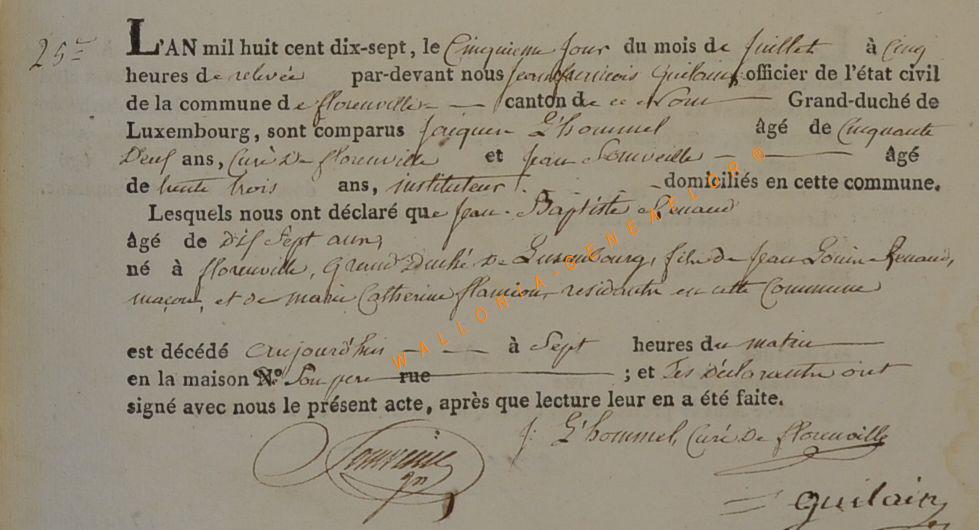 25e
L'AN mil huit cent dix-sept, le Cinquieme jour du mois de Juillet à Cinq
heures de relevée par-devant nous jean francois Guilain, officier de l'état civil
de la commune de florenville canton de ce Nom Grand-duché de
Luxembourg, sont comparus Jacques L'hommel âgé de Cinquante
Deux ans, Curé De florenville et Jean âgé
de trente trois ans, instituteur. domiciliés en cette commune.
Lesquels nous ont déclaré que Jean-Baptiste Renaud
âgé de Dix Sept ans,
né à florenville, Grand Duché De Luxembourg, fils de Jean Louis Renaud,
maçon, et de marie Catherine residents en cette Commune
est décédé aujourd'hui à Sept heures du matin
en la maison N.o Son pere rue ; et Les Déclarants ont
signé avec nous le présent acte, après que lecture leur en a été faite.
J. L'hommel, Curé De florenville
Guilain
WALLONIA-GENEALLOR®